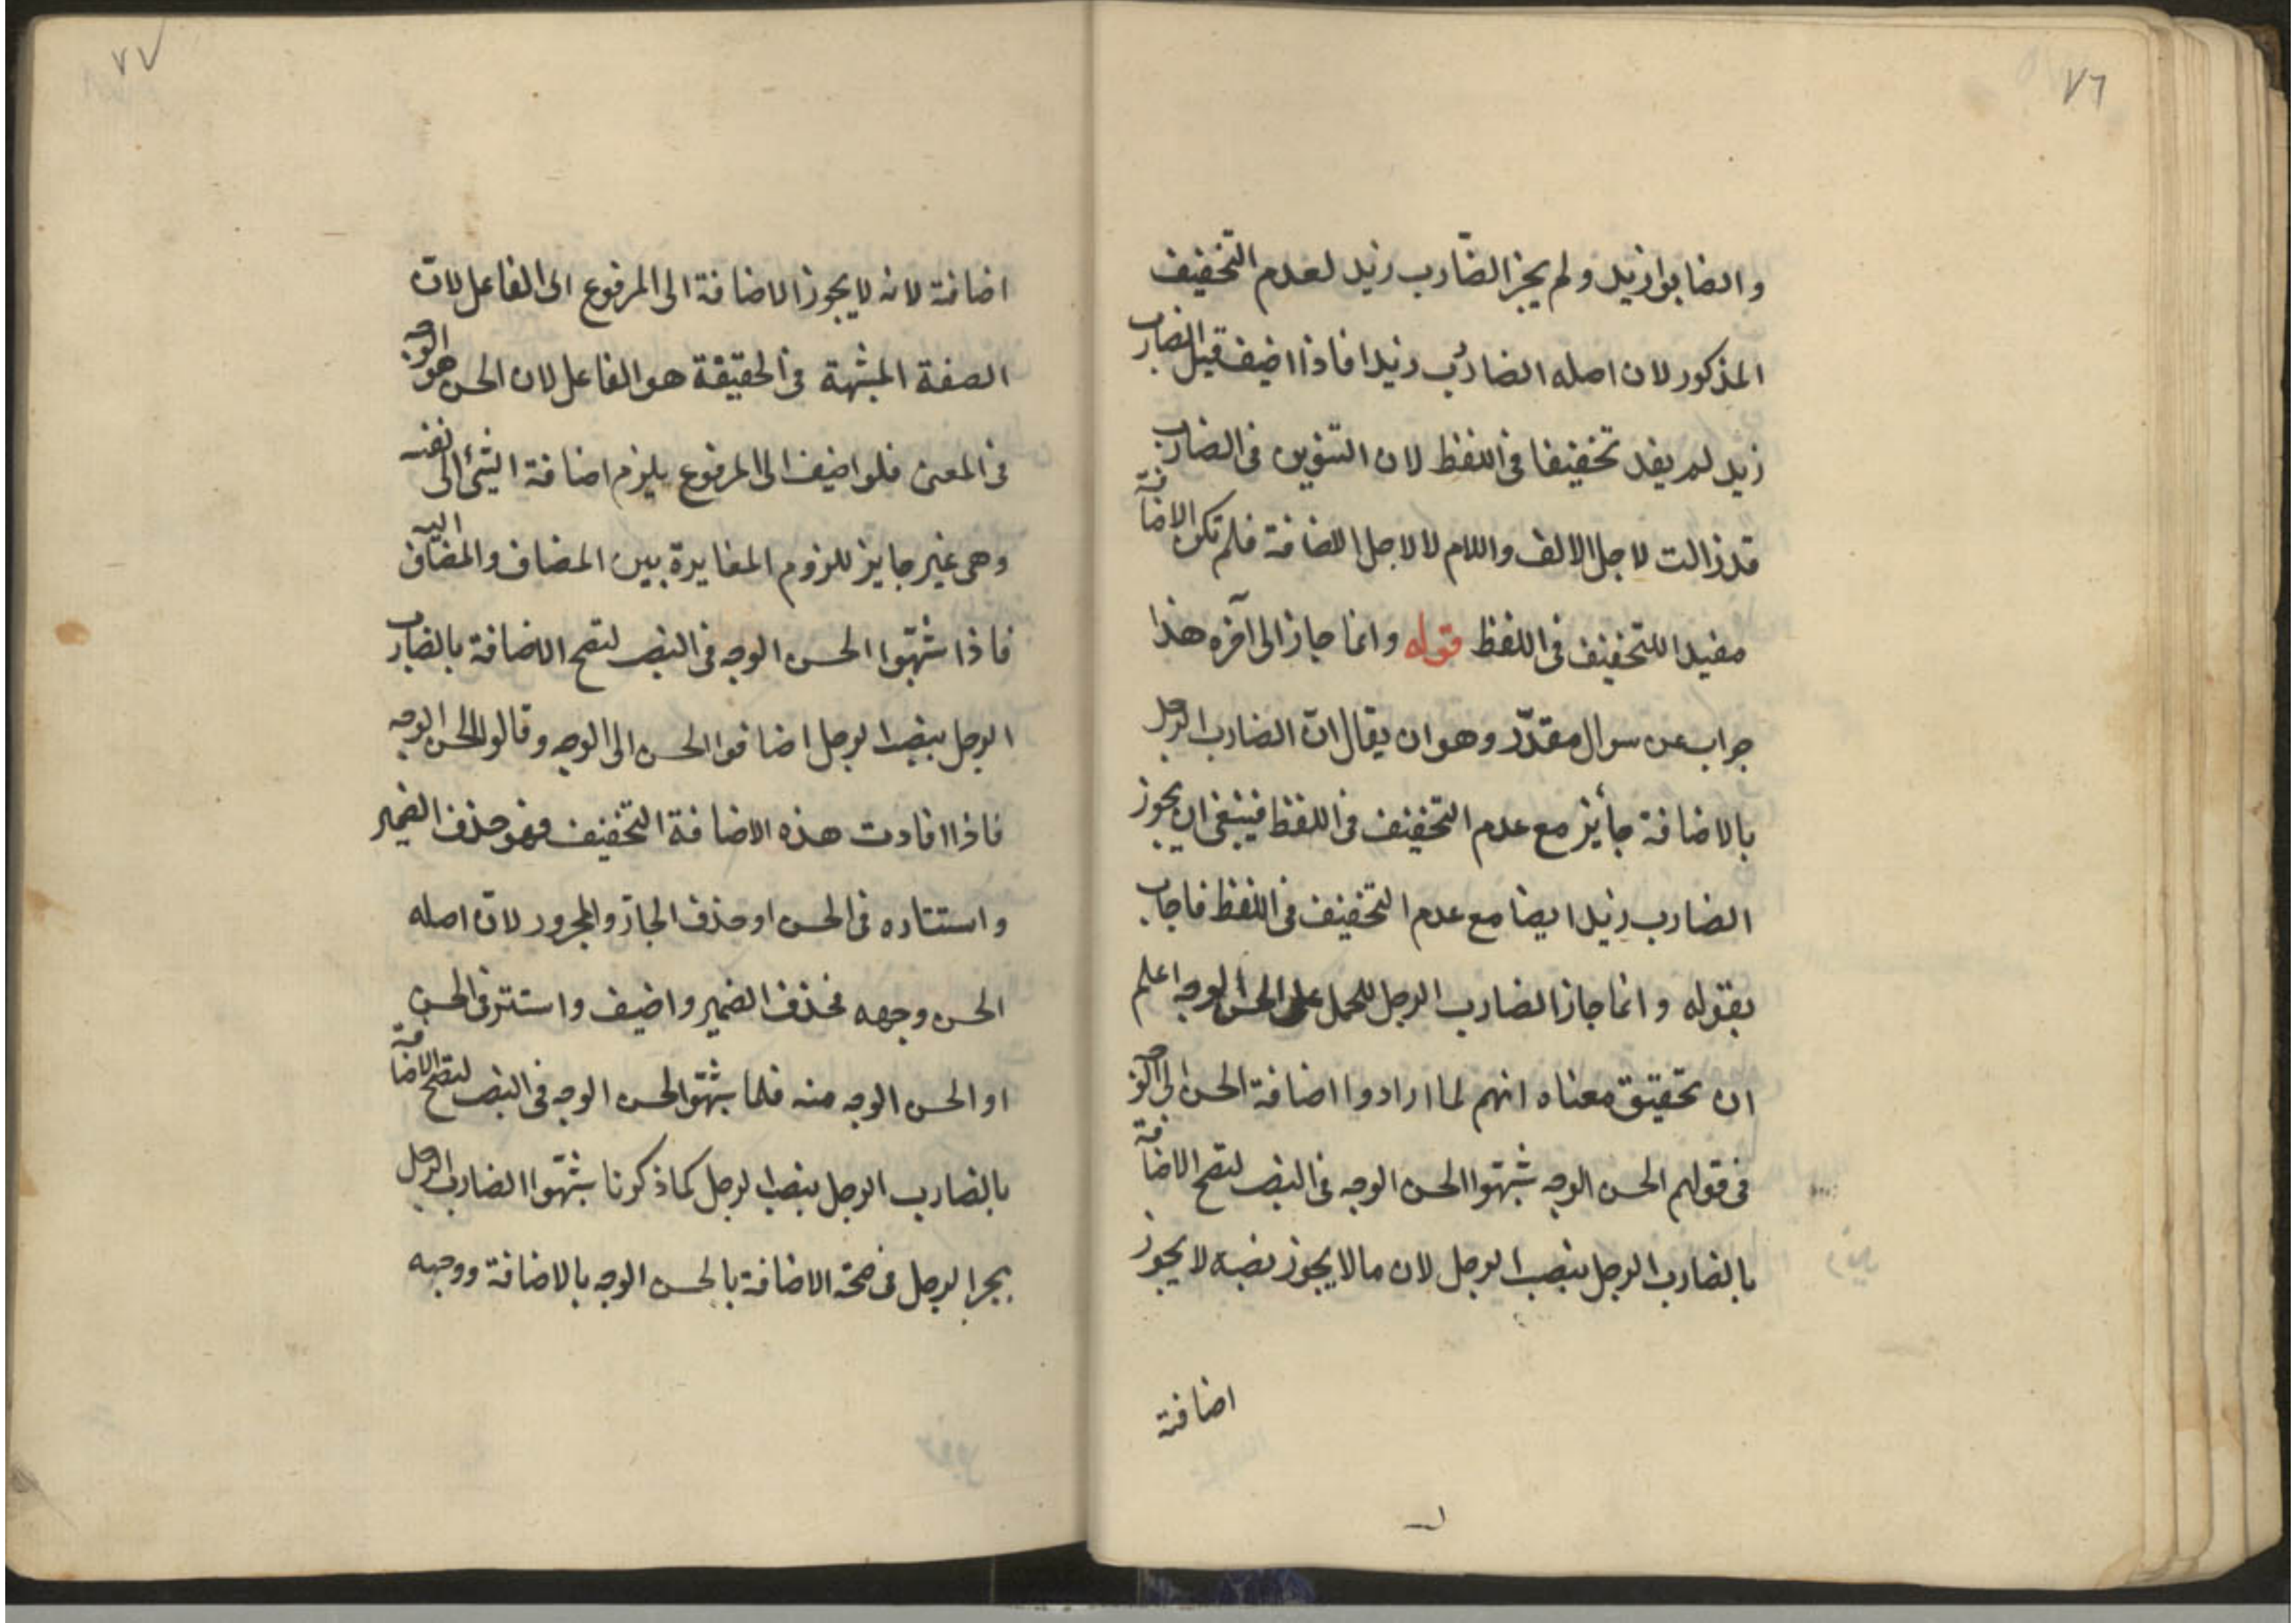 ٧٦
والضابوا زيد ولم يجز الضّارب زيد لعدم التّخفيف
المذكور لان اصله الضاربُ زيدا فاذا اضيف قيل الضارب
زيد لم يفد تخفيفا فى اللفظ لان التنوين فى الضارب
قد زالت لاجل الالف واللام لا لاجل الاضافة فلم تكن الاضافة
مفيدا للتخفيف فى اللفظ قوله وانما جاز الى آخره هذا
جواب عن سوال مقدّر وهو ان يقال انّ الضارب الرجل
بالاضافة جائز مع عدم التخفيف فى اللفظ فينبغى ان يجوز
الضارب زيد ايضا مع عدم التخفيف فى اللفظ فاجاب
بقوله وانما جاز الضارب الرجل للحمل على الحسن الوجه اعلم
ان تحقيق معناه انهم لما ارادوا اضافة الحسن الى الوجه
فى قولهم الحسن الوجه شبّهوا الحسن الوجه فى النصب لتصح الاضافة
بالضارب الرجل بنصب الرجل لان ما لا يجوز نصبه لا يجوز
اضافة
٧٧
اضافة لانه لا يجوز الاضافة الى المرفوع اى الفاعل لانّ
الصفة المشبهة فى الحقيقة هو الفاعل لان الحسن هو الوجه
فى المعنى فلو اضيف الى المرفوع يلزم اضافة الشئ الى نفسه
وهى غير جايز للزوم المغايرة بين المضاف والمضاف اليه
فاذا شبّهوا الحسن الوجه فى النصب لتصح الاضافة بالضارب
الرجل بنصب الرجل اضافوا الحسن الى الوجه وقالوا الحسن الوجه
فاذا افادت هذه الاضافة التخفيف فهو حذف الضمير
واستتاره فى الحسن او حذف الجار والمجرور لانّ اصله
الحسن وجهه فحذف الضمير واضيف واستتر فى الحسن
او الحسن الوجه منه فلما شبّهوا الحسن الوجه فى النصب لتصح الاضافة
بالضارب الرجل بنصب الرجل كما ذكرنا شبّهوا الضارب الرجل
بجر الرجل فى صحّة الاضافة بالحسن الوجه بالاضافة ووجهه